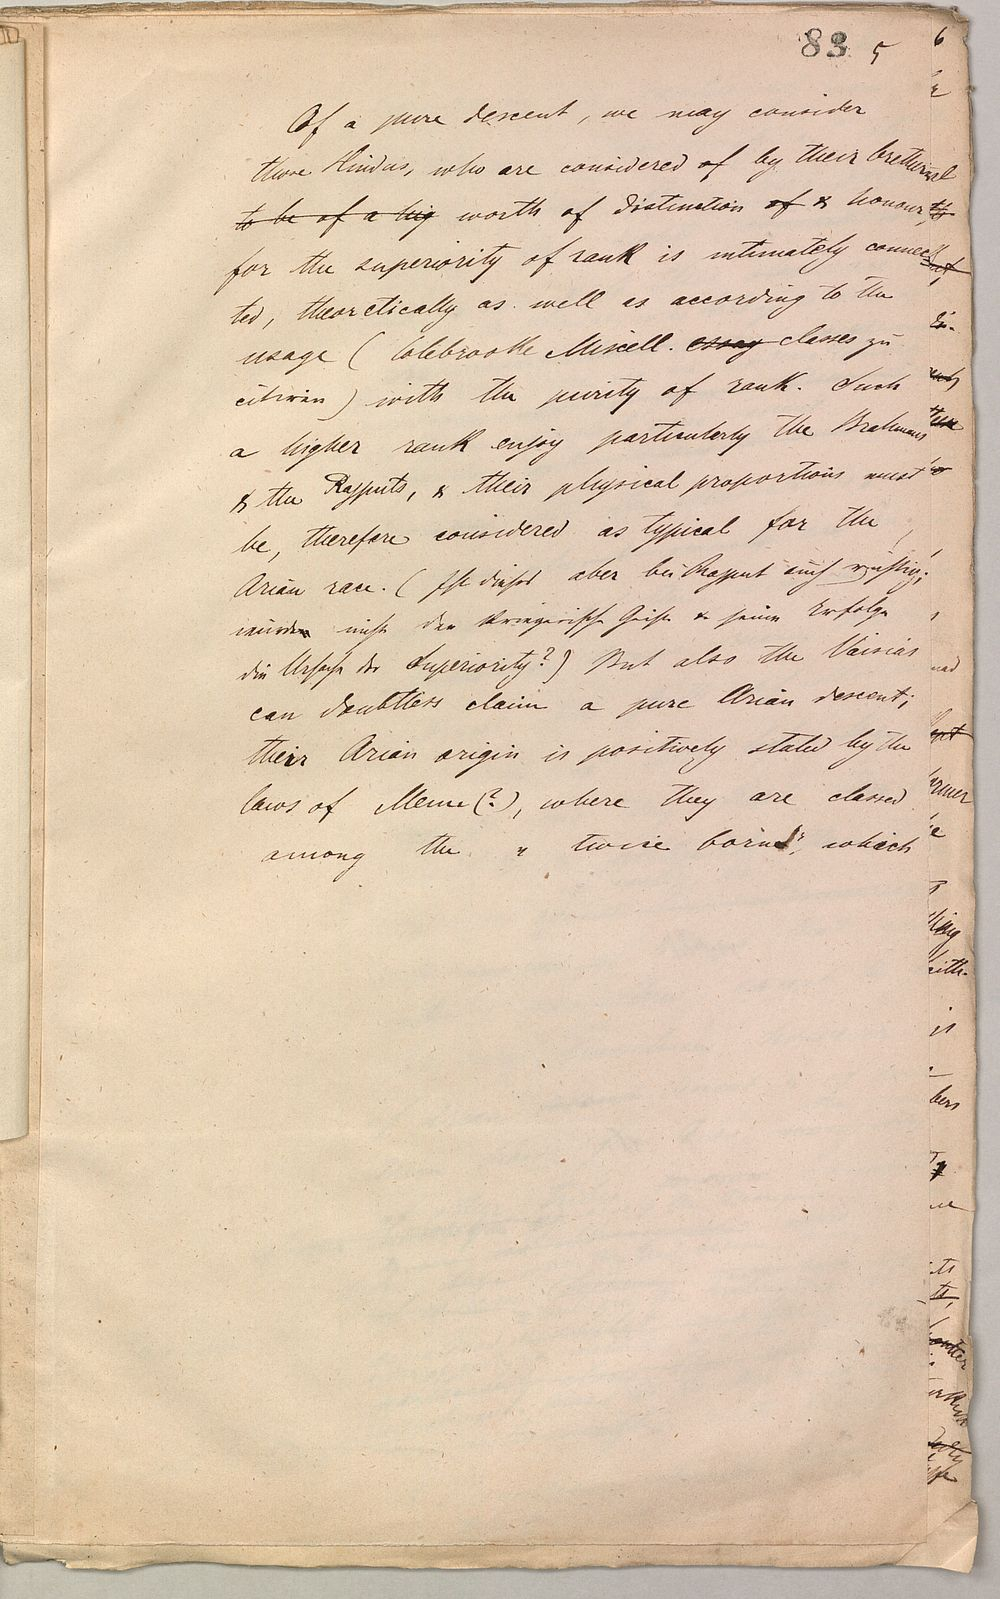 83 5
Of a pure descent, we may consider
those Hindus, who are considered of by their bretheren
to be of a hig worth of distinction of & honour,
for the superiority of rank is intimately connec
ted, theoretically as well as according to the
usage (Colebrooke Miscell. essay classes zu
citiren) with the purity of rank. Such
a higher rank enjoy particularly the Brahmans
& the Rajputs, & their physical proportions must
be, therefore considered as typical for the
Arian race. (Ist dieses aber bei Rajput auch richtig;
wurden nicht der kriegerische Geist & seine Erfolge
die Ursache der Superiority?) But also the Vaisias
can doubtless claim a pure Arian descent;
their Arian origin is positively stated by the
laws of Menu (?), where they are classed
among the " twice born", which
6